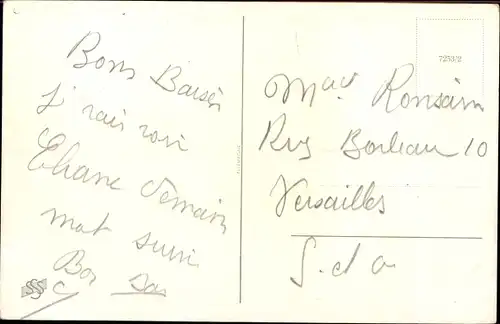 Bons Baisers
J'irais voir
Eliane demain
mot suivi
Bon
7253/2
Mme Ronsain
Rue Borleau 10
Versailles
S. et O.